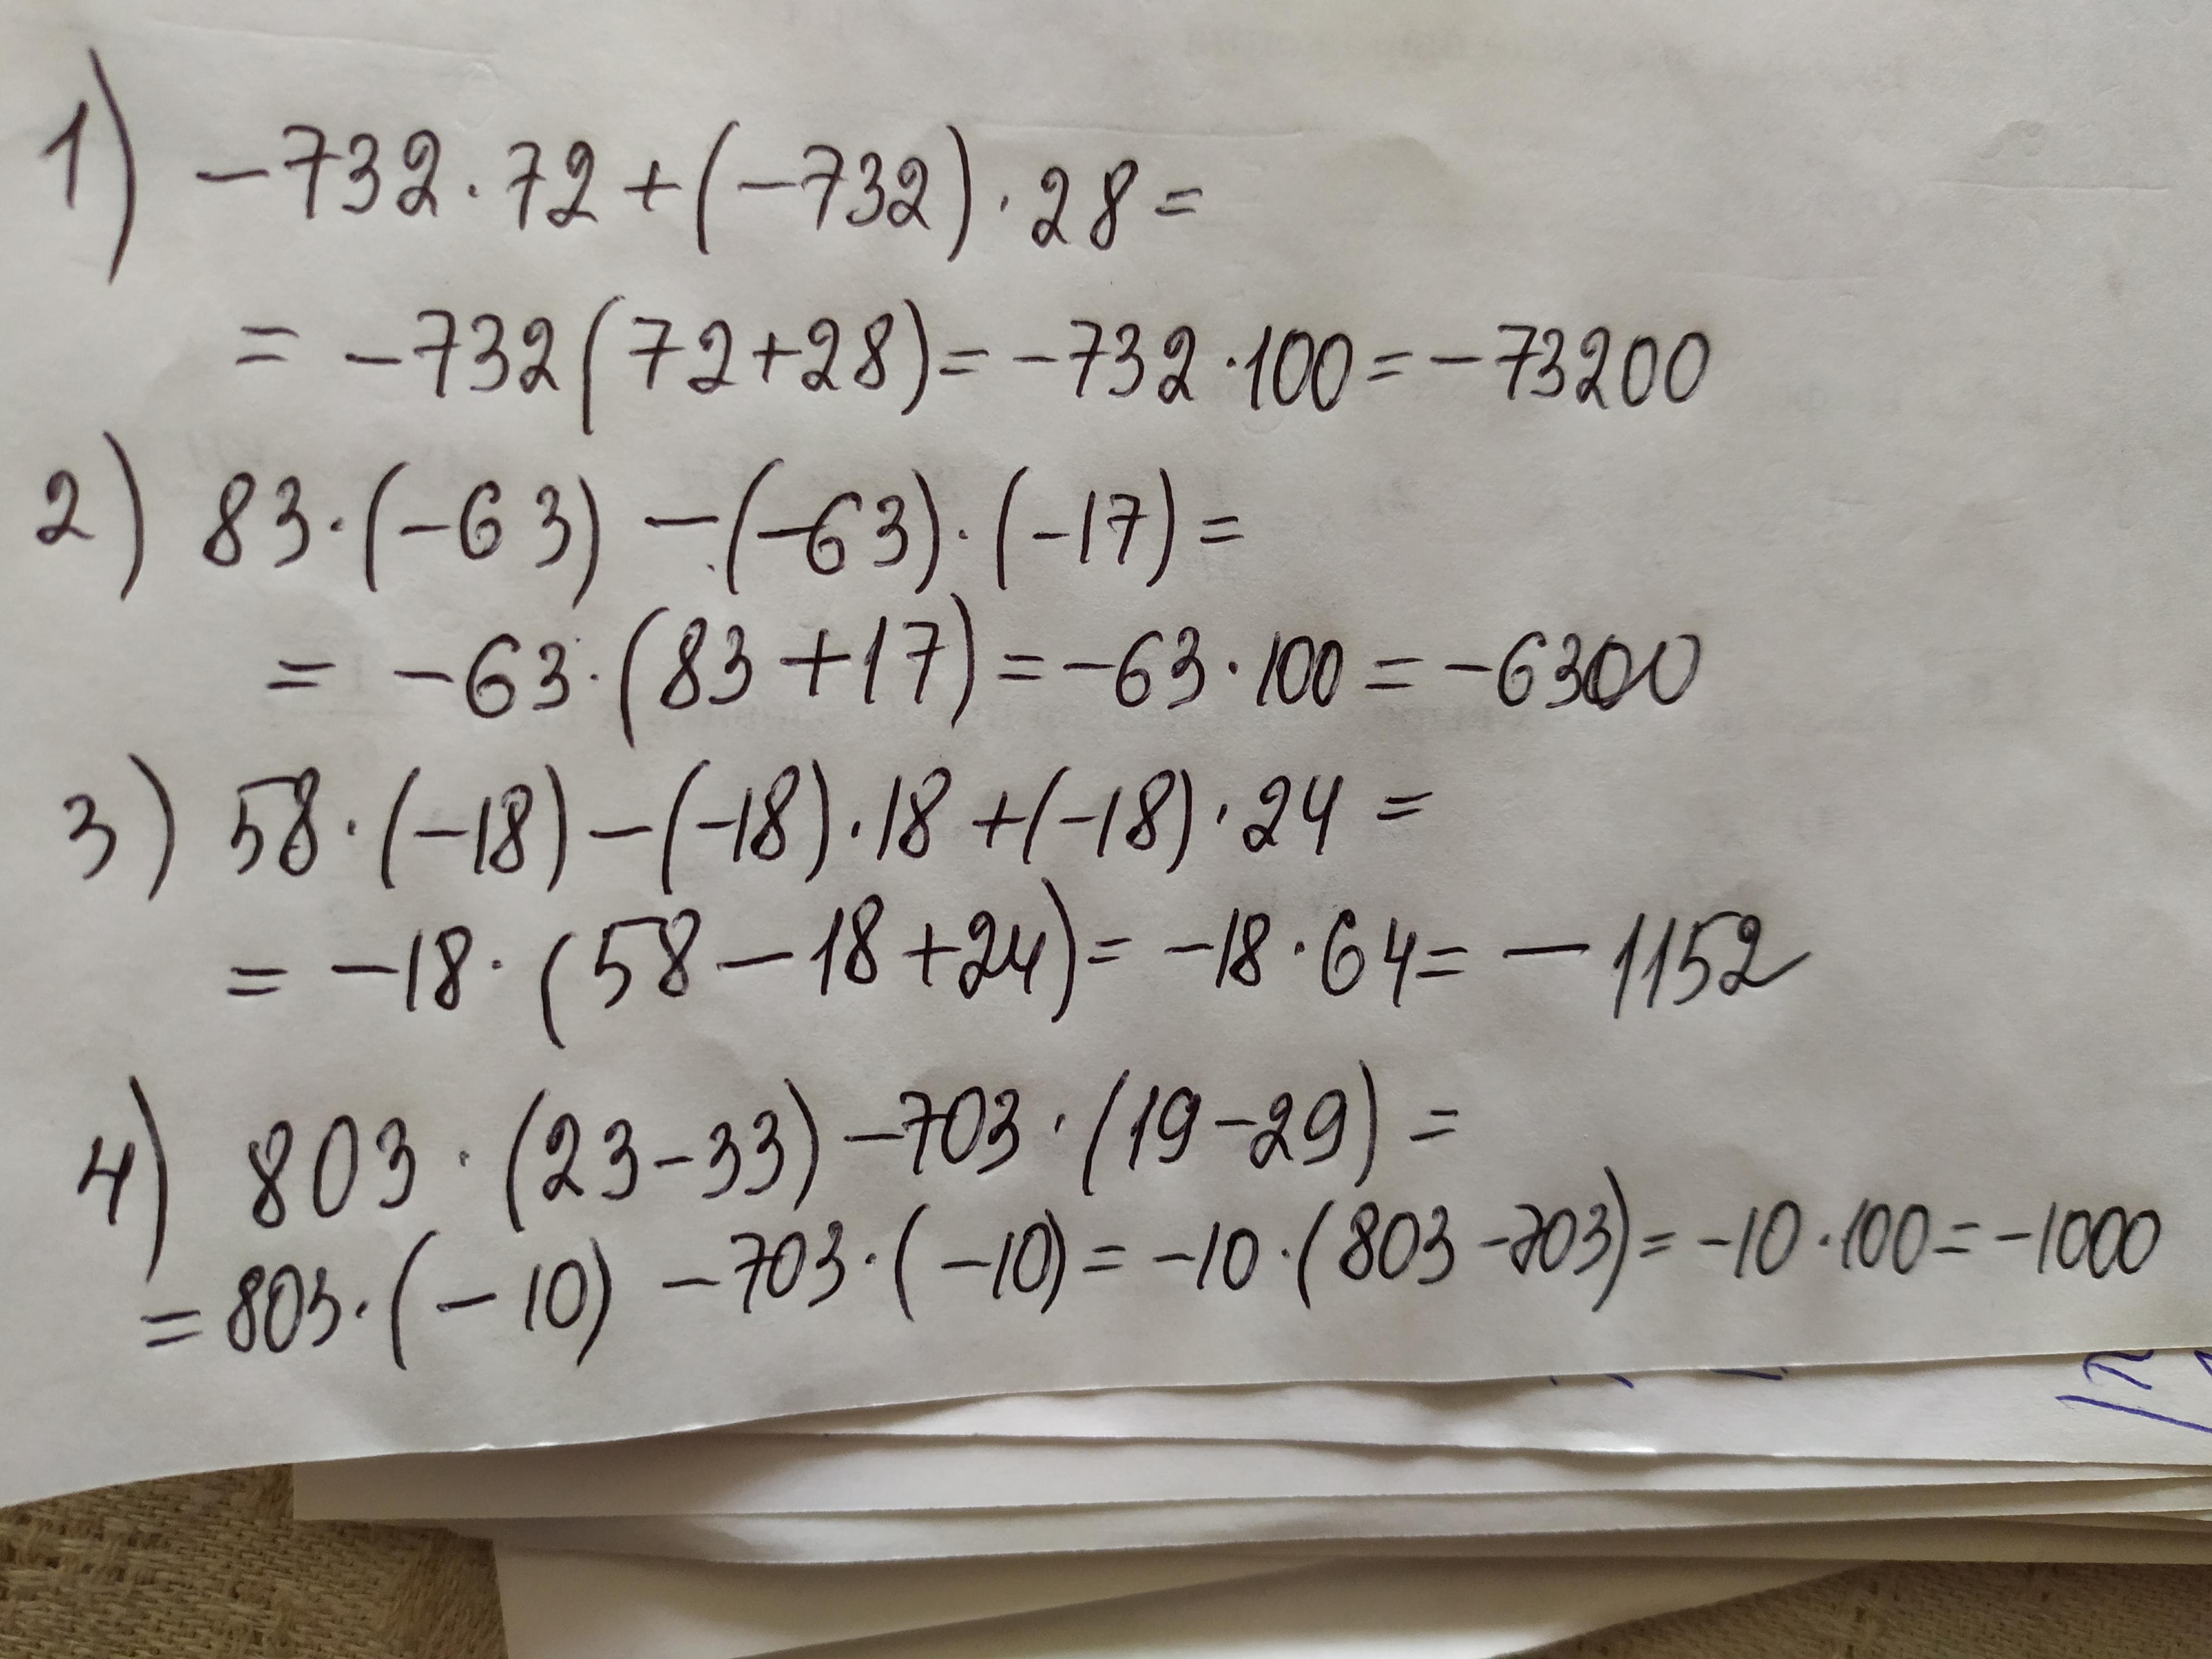 1) -732·72+(-732)·28=
= -732(72+28)= -732·100=-73200
2) 83·(-63) -(-63)·(-17)=
= -63·(83+17)=-63·100=-6300
3) 58·(-18)-(-18)·18+(-18)·24=
= -18·(58-18+24)= -18·64= -1152
4) 803·(23-33)-703·(19-29)=
=803·(-10) -703·(-10)= -10·(803-703)= -10·100= -1000